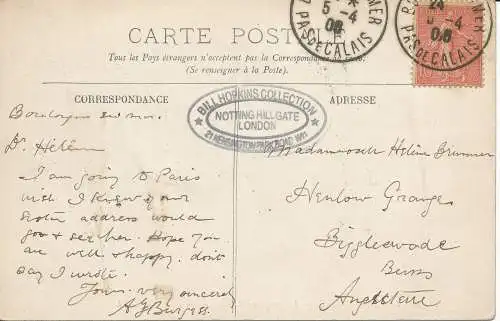 CARTE POSTALE
Tous les Pays étrangers n'acceptent pas la Correspondance
(Se renseigner à la Poste).
CORRESPONDANCE
ADRESSE
5-4
PAS DE CALAIS
24
5-4
06
PAS DE CALAIS
BILL HOPKINS COLLECTION
NOTTING HILL GATE
LONDON
21 KENSINGTON PARK ROAD W11
Boulogne sur mer.
Dr. Hélène
I am going to Paris
wish I knew your
address would
go & see her. Hope you
are well & happy. don't
say I wrote.
Yours very sincerely
A G Burgess.
Mademoiselle Hélène Brunner
Henlow Grange
Biggleswade
Beds
Angleterre